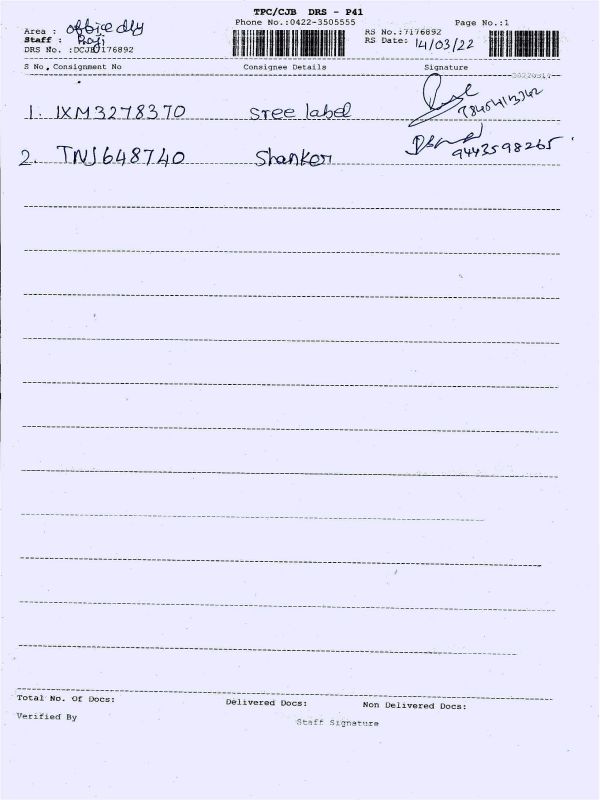 TPC/CJB DRS - P41
Phone No.:0422-3505555 Page No.:1
Area : office dly RS No.:7176892
Staff : Raji RS Date: 14/03/22
DRS No. :DCJB7176892
S No, Consignment No Consignee Details Signature
1. IXM3278370 Sree label
2. TNJ648740 Shanker 9443598265
Total No. Of Docs: Delivered Docs: Non Delivered Docs:
Verified By Staff Signature